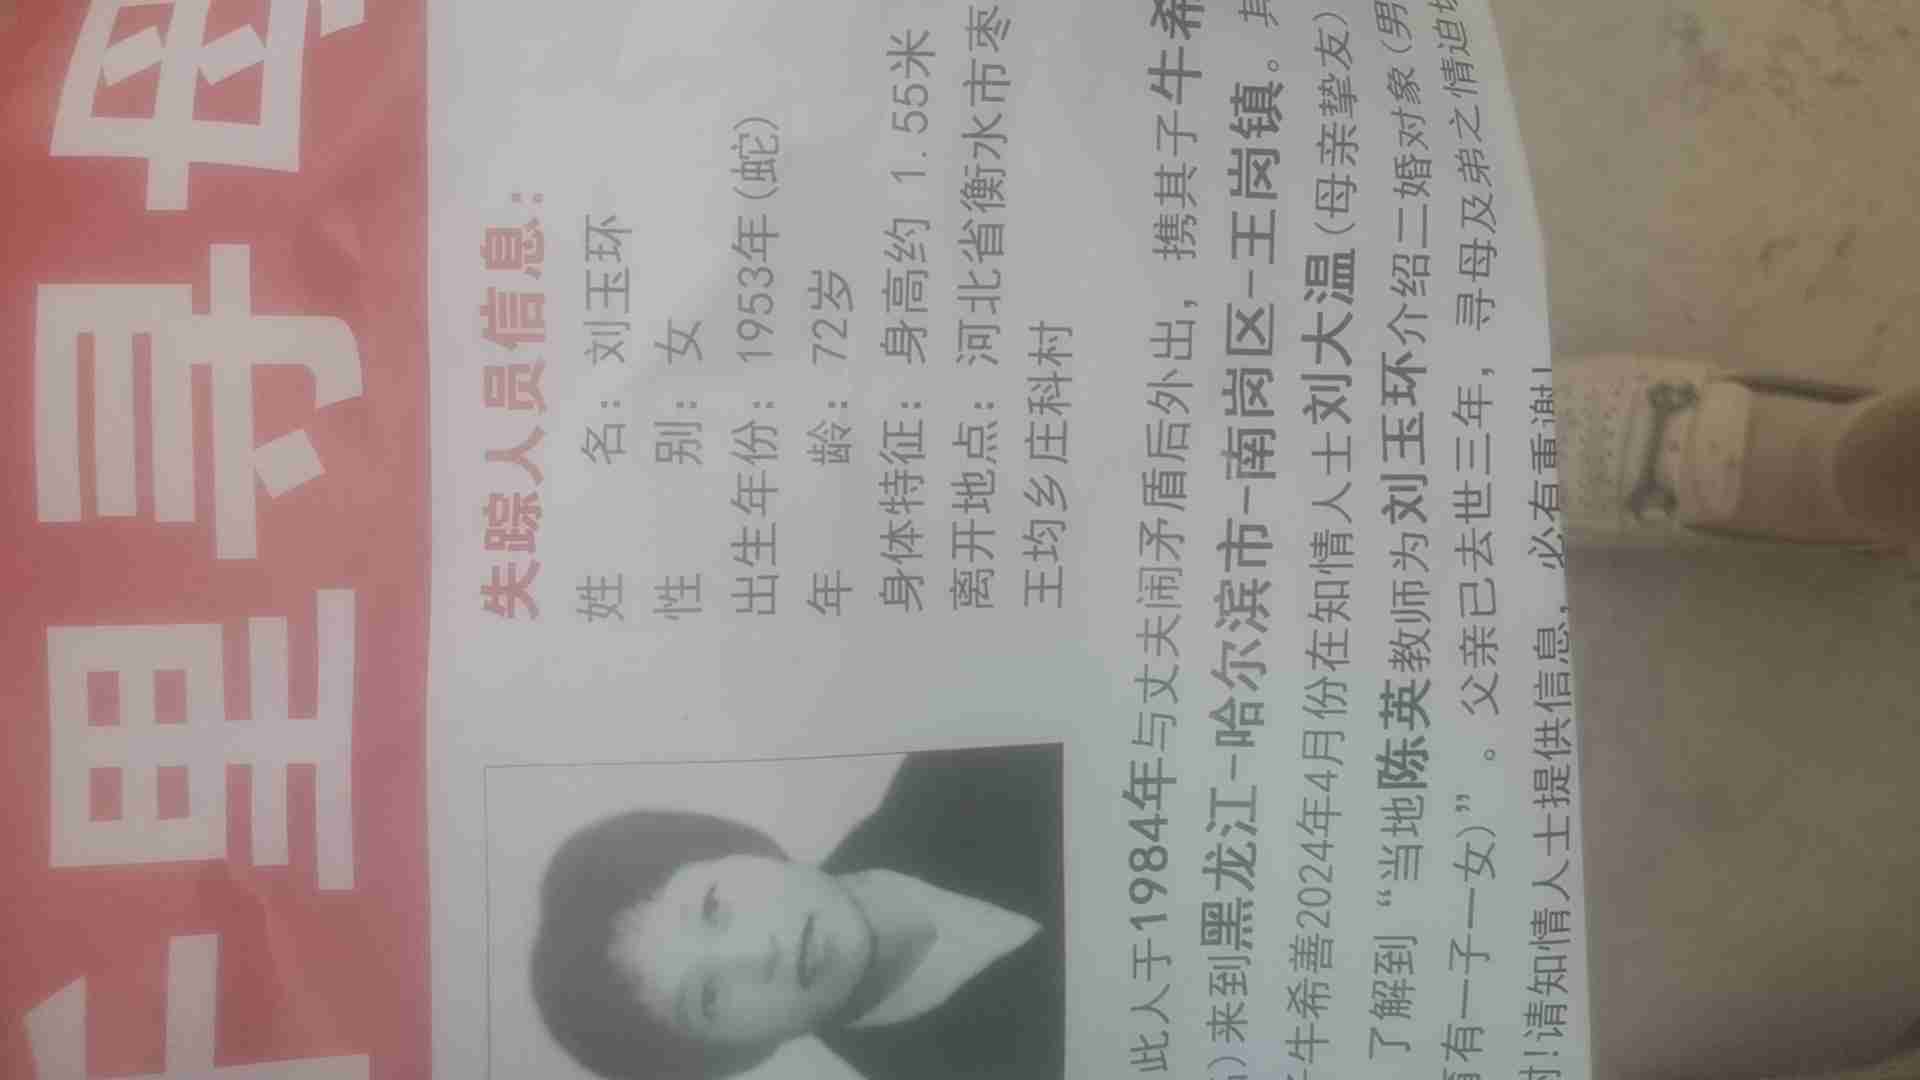 千里寻母
失踪人员信息：
姓 名：刘玉环
性 别：女
出生年份：1953年（蛇）
年 龄：72岁
身体特征：身高约 1.55米
离开地点：河北省衡水市枣
王均乡庄科村
此人于1984年与丈夫闹矛盾后外出，携其子牛希
）来到黑龙江-哈尔滨市-南岗区-王岗镇。其
牛希善2024年4月份在知情人士刘大温（母亲挚友）
了解到“当地陈英教师为刘玉环介绍二婚对象（男
有一子一女）”。父亲已去世三年，寻母及弟之情迫切
!请知情人士提供信息，必有重谢!